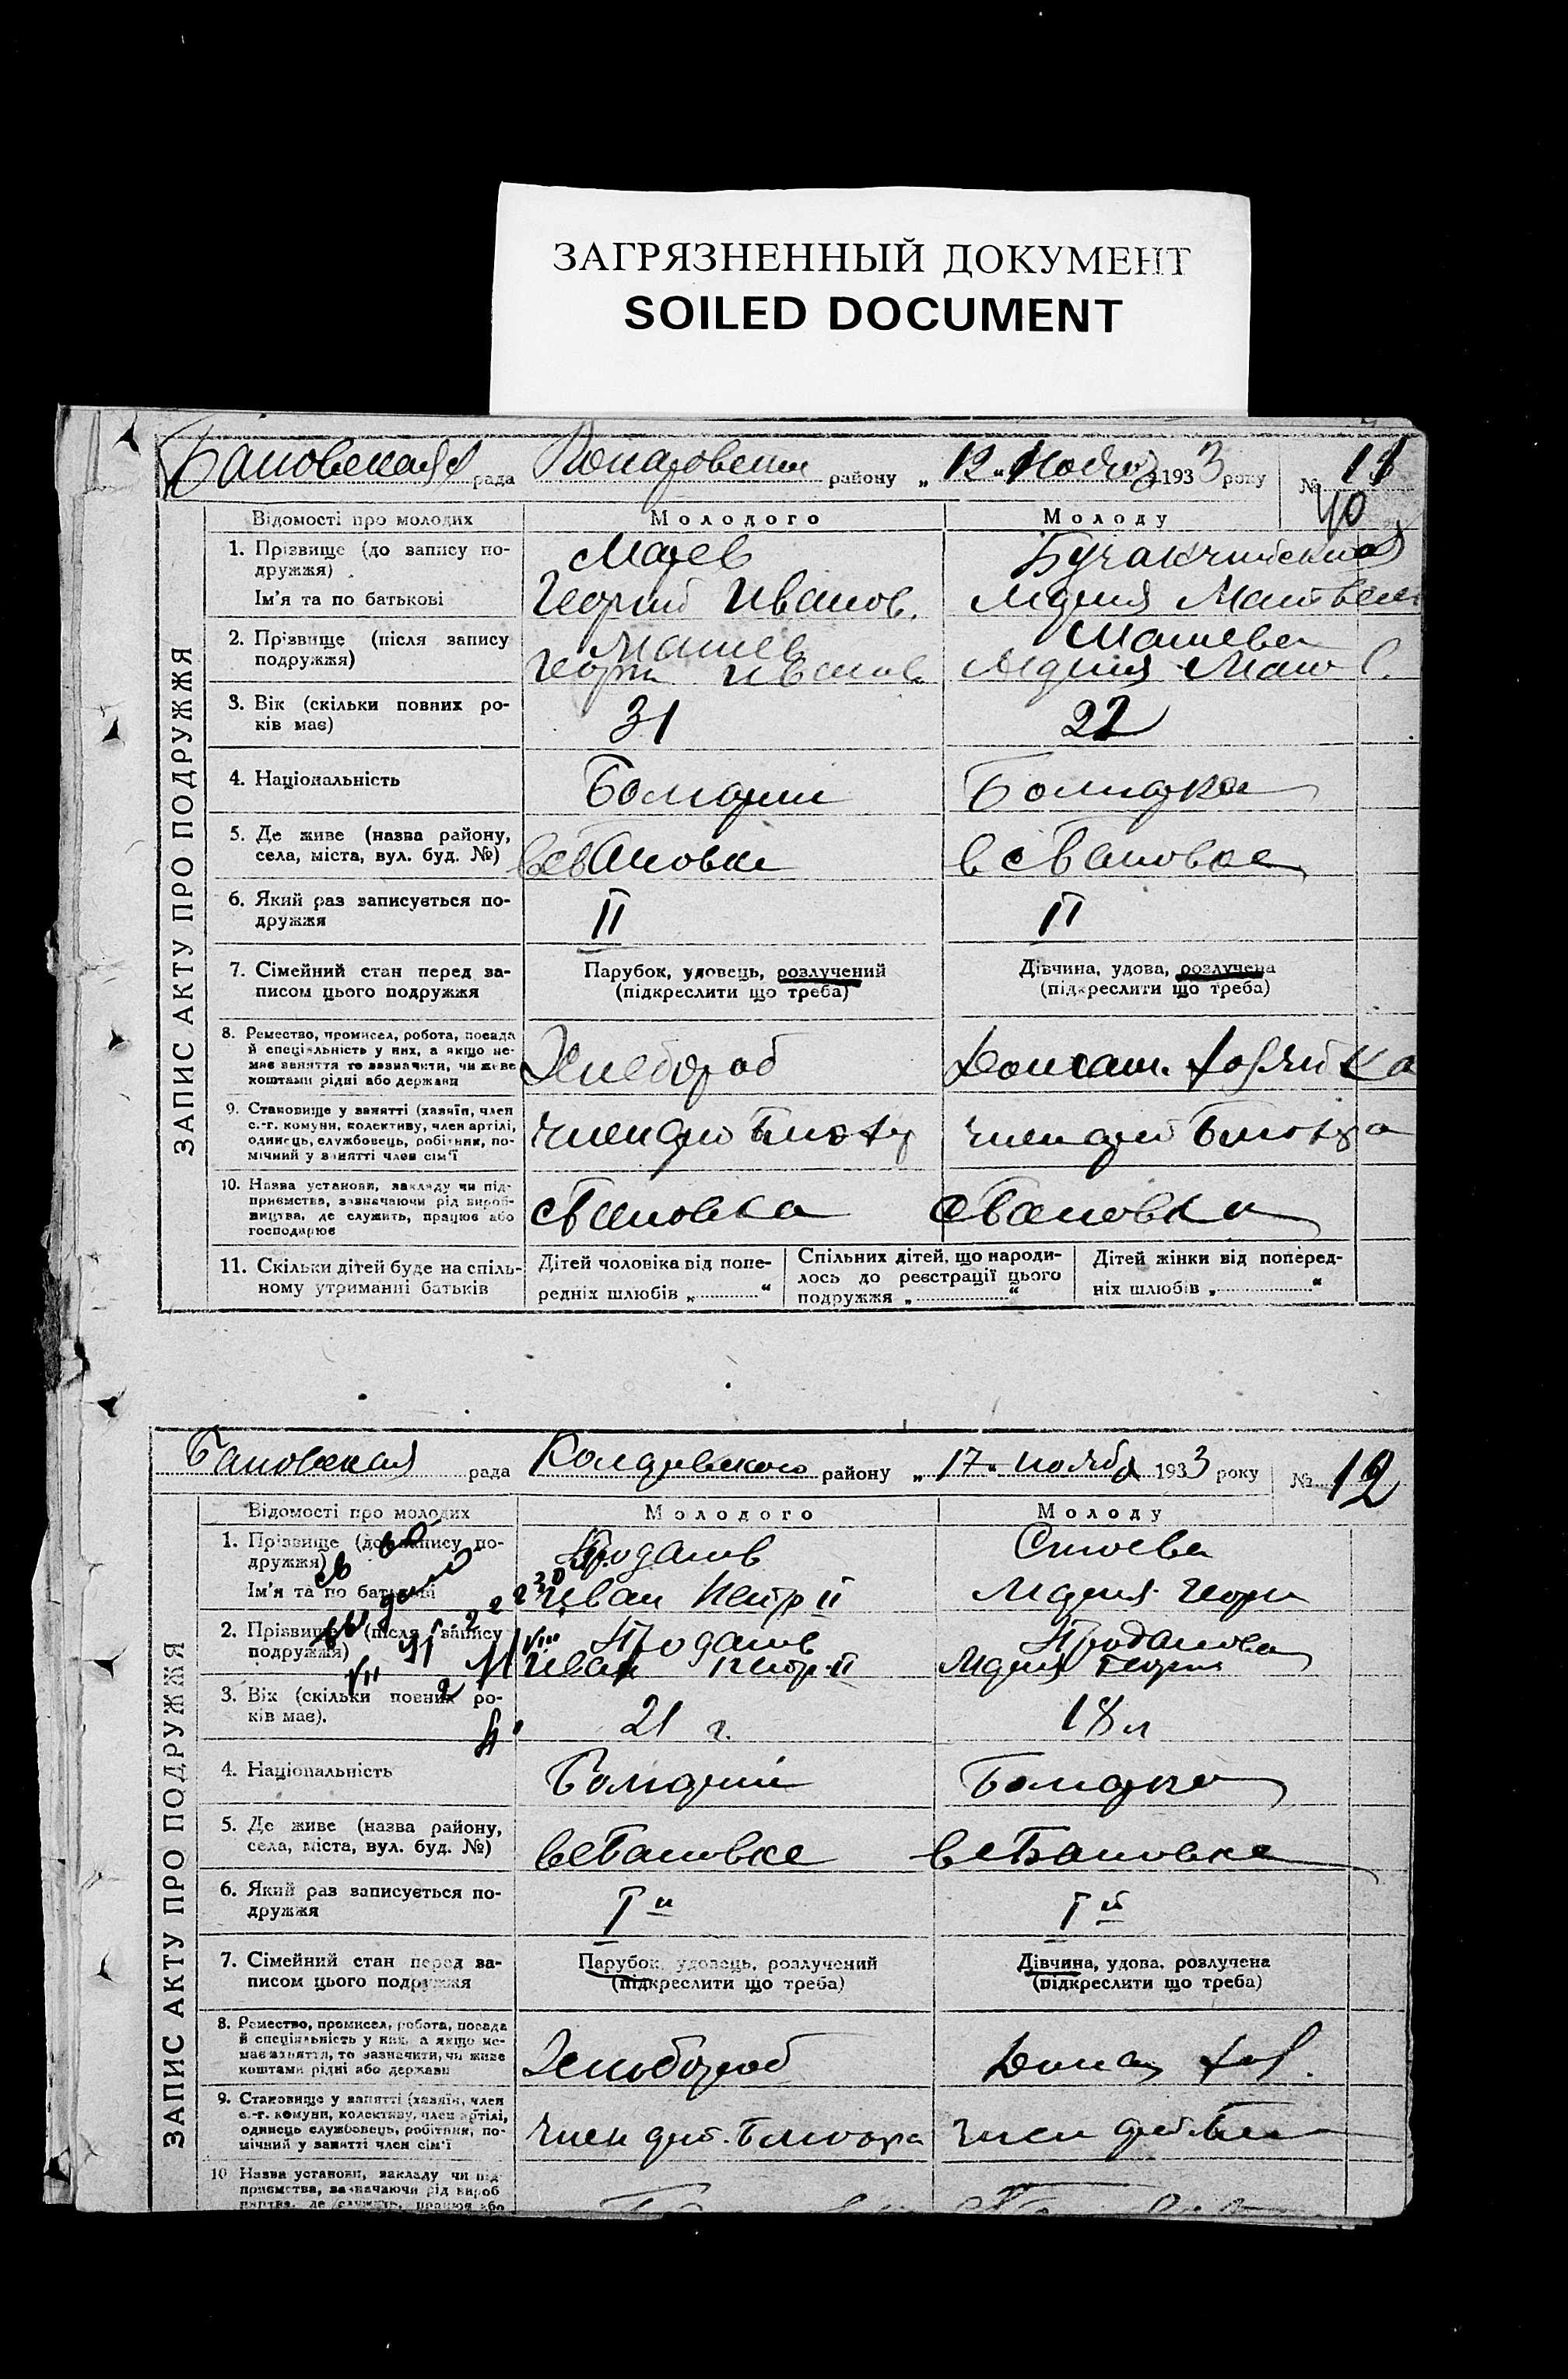 ЗАГРЯЗНЕННЫЙ ДОКУМЕНТ
SOILED DOCUMENT
Бановская рада району „ 12 " 1933 року № 11
40
Відомості про молодих Молодого Молоду
ЗАПИС АКТУ ПРО ПОДРУЖЖЯ
1. Прізвище (до запису по-
дружжя)
Ім'я та по батькові Георгий Иванов. Мария
2. Прізвище (після запису
подружжя) Георги Иванов. Мария
3. Вік (скільки повних ро-
ків має) 31 22
4. Національність Болгарин Болгарка
5. Де живе (назва району,
села, міста, вул. буд. №) в с Бановке в с Бановке
6. Який раз записується по-
дружжя II II
7. Сімейний стан перед за-
писом цього подружжя
Парубок, удовець, розлучений
(підкреслити що треба)
Дівчина, удова, розлучена
(підкреслити що треба)
8. Ремество, промисел, робота, посада
й спеціяльність у них, а якщо не-
має заняття то зазначити, чи живе
коштами рідні або держави
Хлебороб Домаш. хозяйка
9. Становище у занятті (хазяїн, член
с.-г. комуни, колективу, член артілі,
одинець, службовець, робітник, по-
мічний у занятті член сім'ї
член член
10. Назва установи, закладу чи під-
приємства, зазначаючи рід вироб-
ництва, де служить, працює або
господарює
с Бановка с Бановка
11. Скільки дітей буде на спіль-
ному утриманні батьків
Дітей чоловіка від попе-
редніх шлюбів „ “
Спільних дітей, що народи-
лось до реєстрації цього
подружжя „ “
Дітей жінки від поперед-
ніх шлюбів „ “
Бановская рада району „ 17 " ноября 1933 року № 12
Відомості про молодих Молодого Молоду
ЗАПИС АКТУ ПРО ПОДРУЖЖЯ
1. Прізвище (до запису по-
дружжя) Проданов Стоева
Ім'я та по батькові Иван Петр Мария Георг
2. Прізвище (після запису
подружжя) Проданов Проданова
Иван Петр Мария Георги
3. Вік (скільки повних ро-
ків має). 21 г. 18 л
4. Національність Болгарин Болгарка
5. Де живе (назва району,
села, міста, вул. буд. №) в с Бановке в с Бановке
6. Який раз записується по-
дружжя I й I й
7. Сімейний стан перед за-
писом цього подружжя
Парубок, удовець, розлучений
(підкреслити що треба)
Дівчина, удова, розлучена
(підкреслити що треба)
8. Ремество, промисел, робота, посада
й спеціяльність у них, а якщо не-
має заняття, то зазначити, чи живе
коштами рідні або держави
Хлебороб Домаш хоз.
9. Становище у занятті (хазяїн, член
с.-г. комуни, колективу, член артілі,
одинець службовець, робітник, по-
мічний у занятті член сім'ї
член член
10 Назва установи, закладу чи під
приємства, зазначаючи рід вироб
ництва, де служить, працює або